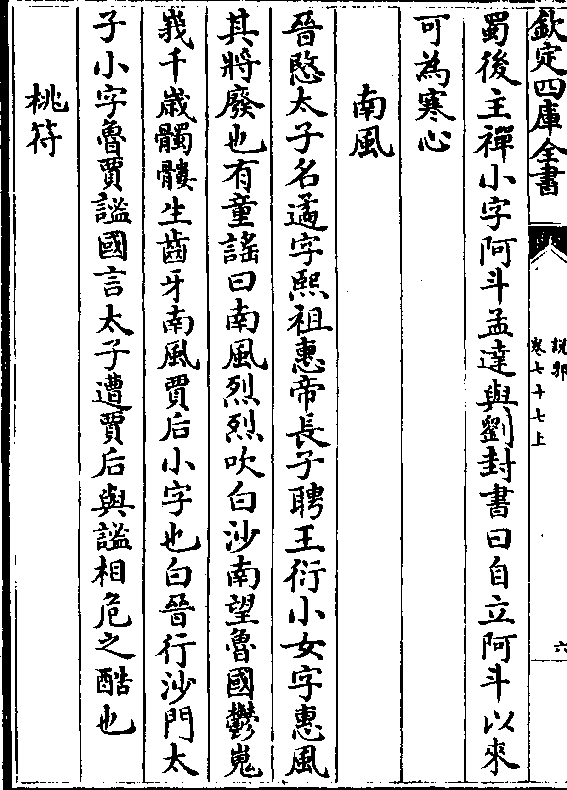 欽定四庫全書
說郛
卷七十七上
六
蜀後主禪小字阿斗孟達與劉封書曰自立阿斗以來
可為寒心
南風
晉愍太子名遹字熙祖惠帝長子聘王衍小女字惠風
其將廢也有童謡曰南風烈烈吹白沙南望魯國鬱嵬
峩千歳髑髏生齒牙南風賈后小字也白晉行沙門太
子小字魯賈謐國言太子遭賈后與謐相危之酷也
桃符